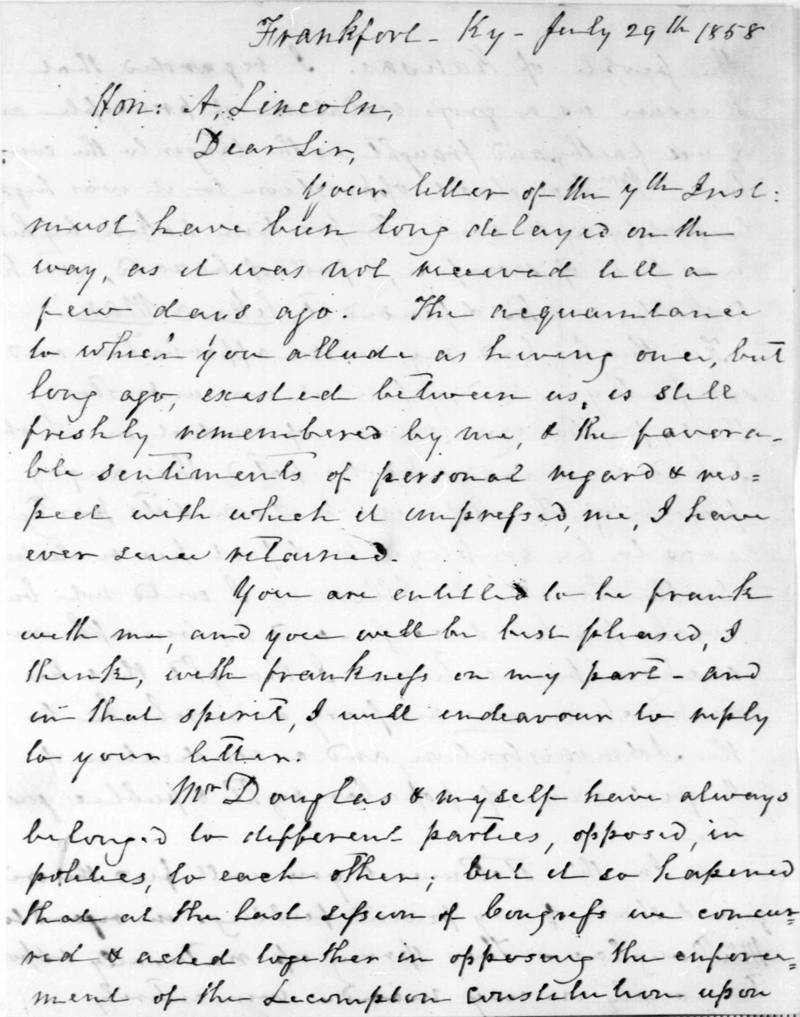 Frankfort - Ky - July 29th 1858
Hon: A. Lincoln,
Dear Sir,
Your letter of the 7th Inst:
must have been long delayed on the
way, as it was not received till a
few days ago. The acquaintance
to which you allude as having once, but
long ago, existed between us, is still
freshly remembered by me, & the favora-
ble sentiments of personal regard & res=
pect with which it impressed, me, I have
ever since retained.
You are entitled to be frank
with me, and you will be best pleased, I
think, with frankness on my part - and
in that spirit, I will endeavour to reply
to your letter.
Mr Douglas & myself have always
belonged to different parties, opposed, in
politics, to each other; but it so hapened
that at the last session of Congress we concur=
red & acted together in opposing the enforce=
ment of the Lecompton constitution upon